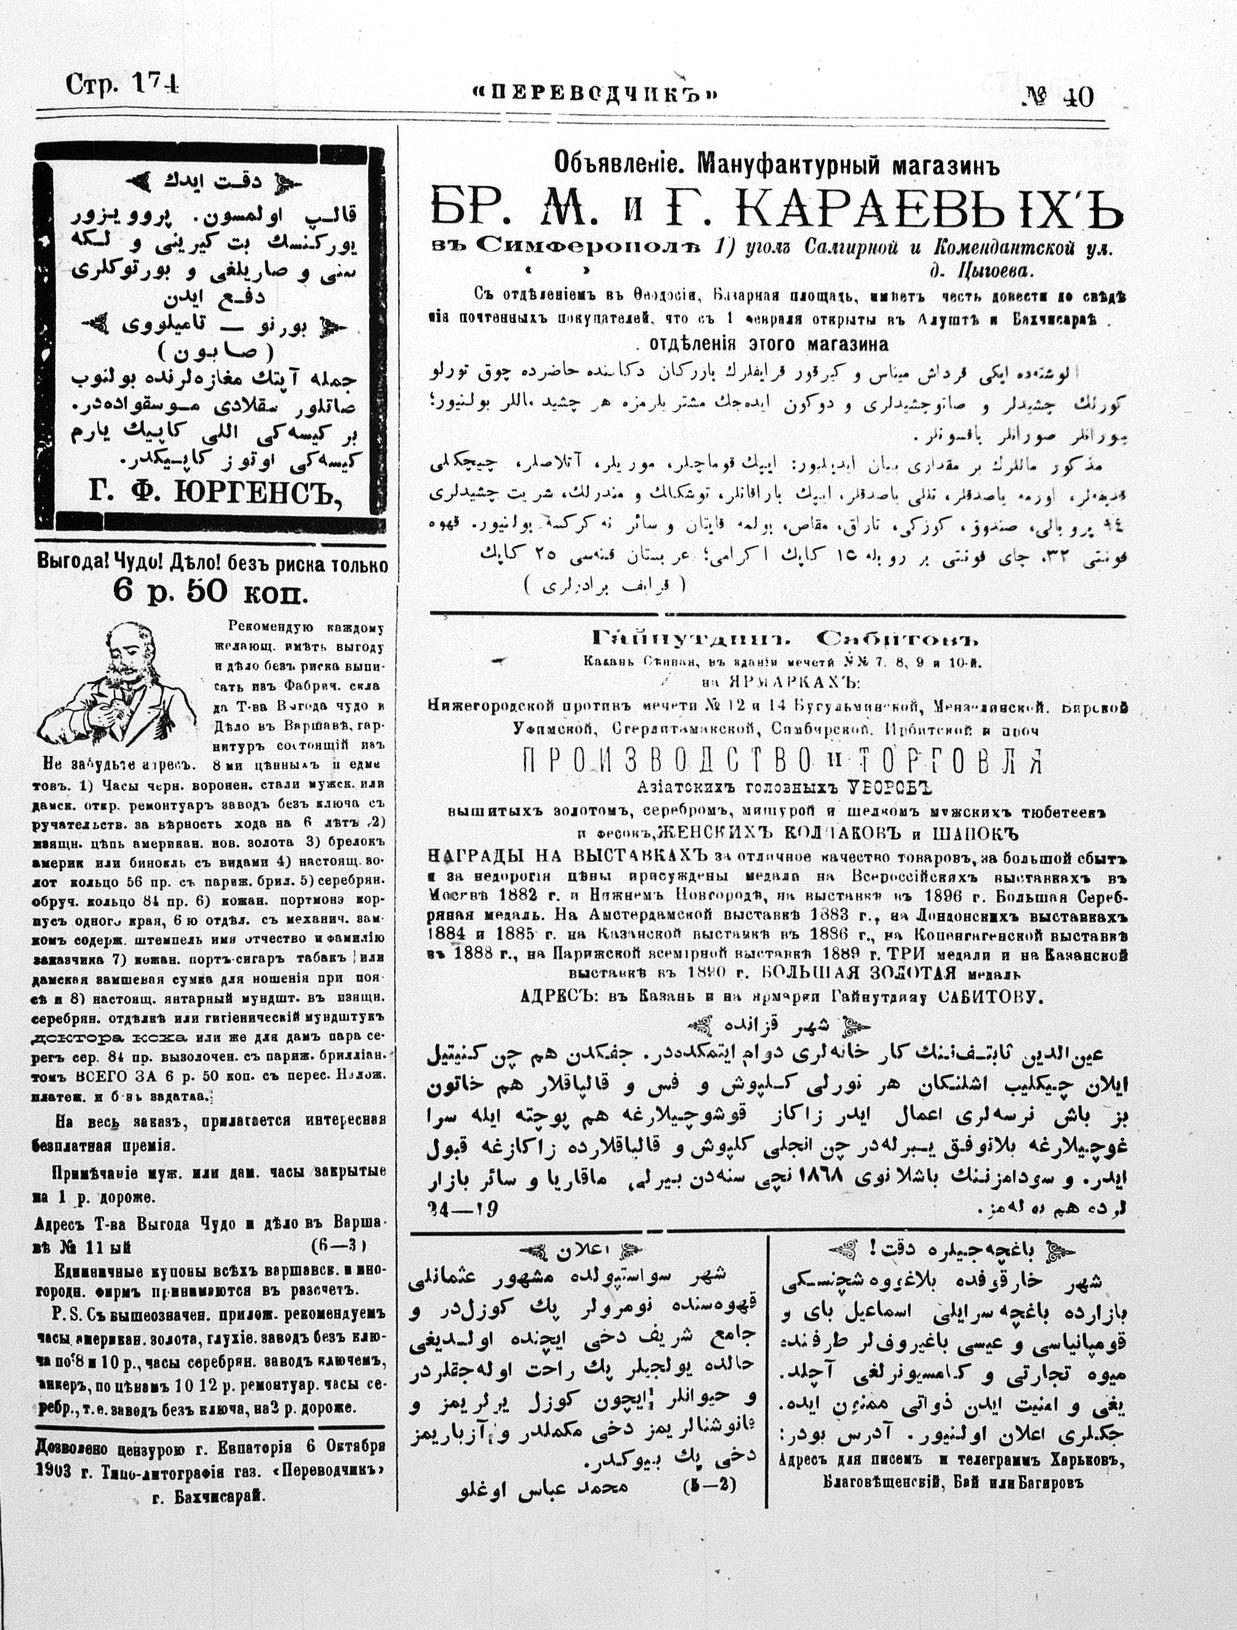 Стр. 174
«ПЕРЕВОДЧИКЪ»
№ 40
دقت ايدك
قالپ اولمسون. پروويزور
يوركنسك بت كيرينی و لكه
سنی و صاريلغی و بورتوكلری
دفع ايدن
بورنو — تاميلووی
(صابون)
جمله آپتك مغازه‌لرنده بولنوب
صاتلور سقلادی موسقواده‌در.
بر كيسه‌كی اللی كاپيك يارم
كيسه‌كی اوتوز كاپيكدر.
Г. Ф. ЮРГЕНСЪ,
Выгода! Чудо! Дѣло! безъ риска только
6 р. 50 коп.
Рекомендую каждому
желающ. имѣть выгоду
и дѣло безъ риска выпи-
сать изъ Фабрич. скла
да Т-ва Выгода чудо и
Дѣло въ Варшавѣ, гар-
нитуръ состоящій изъ
Не забудьте адресъ. 8 ми цѣнныхъ предме
товъ. 1) Часы черн. воронен. стали мужск. или
дамск. откр. ремонтуаръ заводъ безъ ключа съ
ручательств. за вѣрность хода на 6 лѣтъ 2)
изящн. цѣпь американ. нов. золота 3) брелокъ
америк или бинокль съ видами 4) настоящ. зо-
лот кольцо 56 пр. съ париж. брил. 5) серебрян.
обруч. кольцо 84 пр. 6) кожан. портмонэ кор-
пусъ одного края, 6 ю отдѣл. съ механич. зам-
комъ содерж. штемпель имя отчество и фамилію
заказчика 7) кожан. портъ-сигаръ табакъ или
дамская замшевая сумка для ношенія при поя-
сѣ и 8) настоящ. янтарный мундшт. въ изящн.
серебрян. отдѣлкѣ или гигіеническій мундштукъ
доктора коха или же для дамъ пара се-
регъ сер. 84 пр. вызолочен. съ париж. брилліан.
томъ ВСЕГО ЗА 6 р. 50 коп. съ перес. Налож.
платеж. и безъ задатка.
На весь заказъ, прилагается интересная
безплатная премія.
Примѣчаніе муж. или дам. часы закрытые
на 1 р. дороже.
Адресъ Т-ва Выгода Чудо и дѣло въ Варша-
вѣ № 11 ый (6—3)
Единичные купоны всѣхъ варшавск. и ино-
городн. фирмъ принимаются въ разсчетъ.
P. S. Съ вышеозначен. прилож. рекомендуемъ
часы американ. золота, глухіе. заводъ безъ клю-
ча по 8 и 10 р., часы серебрян. заводъ ключемъ,
анкеръ, по цѣнамъ 10 12 р. ремонтуар. часы се-
ребр., т. е. заводъ безъ ключа, на 2 р. дороже.
Дозволено цензурою г. Евпаторія 6 Октября
1903 г. Типо-литографія газ. «Переводчикъ»
г. Бахчисарай.
Объявленіе. Мануфактурный магазинъ
БР. М. и Г. КАРАЕВЫХЪ
въ Симферополѣ 1) уголъ Салгирной и Комендантской ул.
д. Цыгоева.
Съ отдѣленіемъ въ Ѳеодосіи, Базарная площадь, имѣетъ честь довести до свѣдѣ
нія почтенныхъ покупателей, что съ 1 февраля открыты въ Алуштѣ и Бахчисараѣ
отдѣленія этого магазина
الوشتەده ايكی قرداش ميناس و كيرقور قرايفلرك بازركان دكاننده حاضرده چوق تورلو
كورلك چشيدلر و صانوچشيدلری و دوكون ايده‌جك مشتريلرمزه هر چشيد ماللر بولنيور؛
سورانلر صورانلر باقسونلر.
مذكور ماللرك بر مقداری بيان ايديليور: ايپك قوماچلر، موريلر، آتلاصلر، چيچكلی
قديفه‌لر، اورمه ياصدقلر، تللی باصدقلر، ايپك باراقانلر، توشكلك و مندرلك، شريت چشيدلری
صندوق، كوزكی، تاراق، مقاص، بولمه قايتان و سائر نه كركسه بولنيور. قهوه
فونتی ٣٢، چای فونتی بر روبله ١٥ كاپك اكرامی؛ عربستان قنه‌سی ٢٥ كاپك
(قرايف برادرلری)
Гайнутдинъ. Сабитовъ
Казань Сѣнная, въ зданіи мечети №№ 7. 8, 9 и 10-й.
на ЯРМАРКАХЪ:
Нижегородской противъ мечети № 12 и 14 Бугульминской, Мензелинской. Бирской
Уфимской, Стерлитамакской, Симбирской. Ирбитской и проч
ПРОИЗВОДСТВО и ТОРГОВЛЯ
Азіатскихъ головныхъ УБОРОВЪ
вышитыхъ золотомъ, серебромъ, мишурой и шелкомъ мужскихъ тюбетеекъ
и фесокъ, ЖЕНСКИХЪ КОЛПАКОВЪ и ШАПОКЪ
НАГРАДЫ НА ВЫСТАВКАХЪ за отличное качество товаровъ, за большой сбытъ
и за недорогія цѣны присуждены медала на Всероссійскихъ выставкахъ въ
Москвѣ 1882 г. и Нижнемъ Новгородѣ, на выставкѣ въ 1896 г. Большая Сереб-
ряная медаль. На Амстердамской выставкѣ 1883 г., на Лондонскихъ выставкахъ
1884 и 1885 г. на Казанской выставкѣ въ 1886 г., на Копенгагенской выставкѣ
въ 1888 г., на Парижской всемірной выставкѣ 1889 г. ТРИ медали и на Казанской
выставкѣ въ 1890 г. БОЛЬШАЯ ЗОЛОТАЯ медаль
АДРЕСЪ: въ Казань и на ярмарки Гайнутдину САБИТОВУ.
شهر قزانده
عين‌الدين ثابتفننك كار خانه‌لری دوام ايتمكده‌در. جفكدن هم چن كنيتيل
ايلان چيكليب اشلنكان هر نورلی كلپوش و فس و قالپاقلار هم خاتون
بز باش نرسه‌لری اعمال ايدر زاكاز قوشوچيلارغه هم پوچته ايله سرا
غوچيلارغه بلانوفق يبرله‌در چن انجلی كلپوش و قالپاقلارده زاكازغه قبول
ايدر. و سودامزننك باشلانوی ١٨٦٨ نچی سنه‌دن بيرلی ماقاريا و سائر بازار
لرده هم
24—19
اعلان
شهر سواستپولده مشهور عثمانلی
قهوه‌سنده نومرولر پك كوزل‌در و
جامع شريف دخی ايچنده اولديغی
حالده يولجيلر پك راحت اوله‌جقلردر
و حيوانلر ايچون كوزل يرلريمز و
فانوشنالريمز دخی مكملدر و آزباريمز
دخی پك بيوكدر.
محمد عباس اوغلو (5—2)
باغچه‌جيلره دقت!
شهر خارقوفده بلاغوه‌شچنسكی
بازارده باغچه‌سرايلی اسماعيل بای و
قومپانياسی و عيسی باغيروف‌لر طرفنده
ميوه تجارتی و كامسيونرلغی آچلد.
يغی و امنيت ايدن ذواتی ممنون ايده.
جكلری اعلان اولنيور. آدرس بودر:
Адресъ для писем и телеграмм Харьковъ,
Благовѣщенскій, Бай или Багировъ